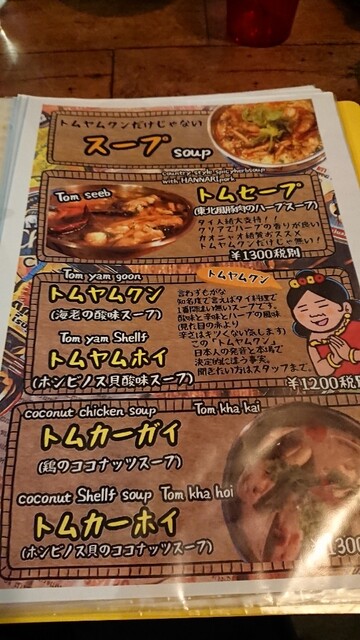 トムヤムクンだけじゃない
スープ soup
country style spicy herb soup
with HANNARI pork
Tom seeb
トムセープ
(東北風豚肉のハーブスープ)
タイ人絶大支持!!
クリアでハーブの香りが良い
カオニャオ絶賛おススメ
トムヤムクンだけじゃ無い!
¥1300税別
Tom yam goon
トムヤムクン
(海老の酸味スープ)
Tom yam Shellf
トムヤムホイ
(ホンビノス貝酸味スープ)
トムヤムクン
言わずもがな
知名度で言えばタイ料理で
1番間違い無いスープです。
酸味と辛味とハーブの風味
(見た目の赤より
辛さはキツくない気します)
この「トムヤムクン」
日本人の発音と本場で
決定的にほう事実。
聞きたい方はスタッフまで。
¥1200税別
coconut chicken soup
Tom kha kai
トムカーガイ
(鶏のココナッツスープ)
coconut Shellf soup Tom kha hoi
トムカーホイ
(ホンビノス貝のココナッツスープ)
¥1300